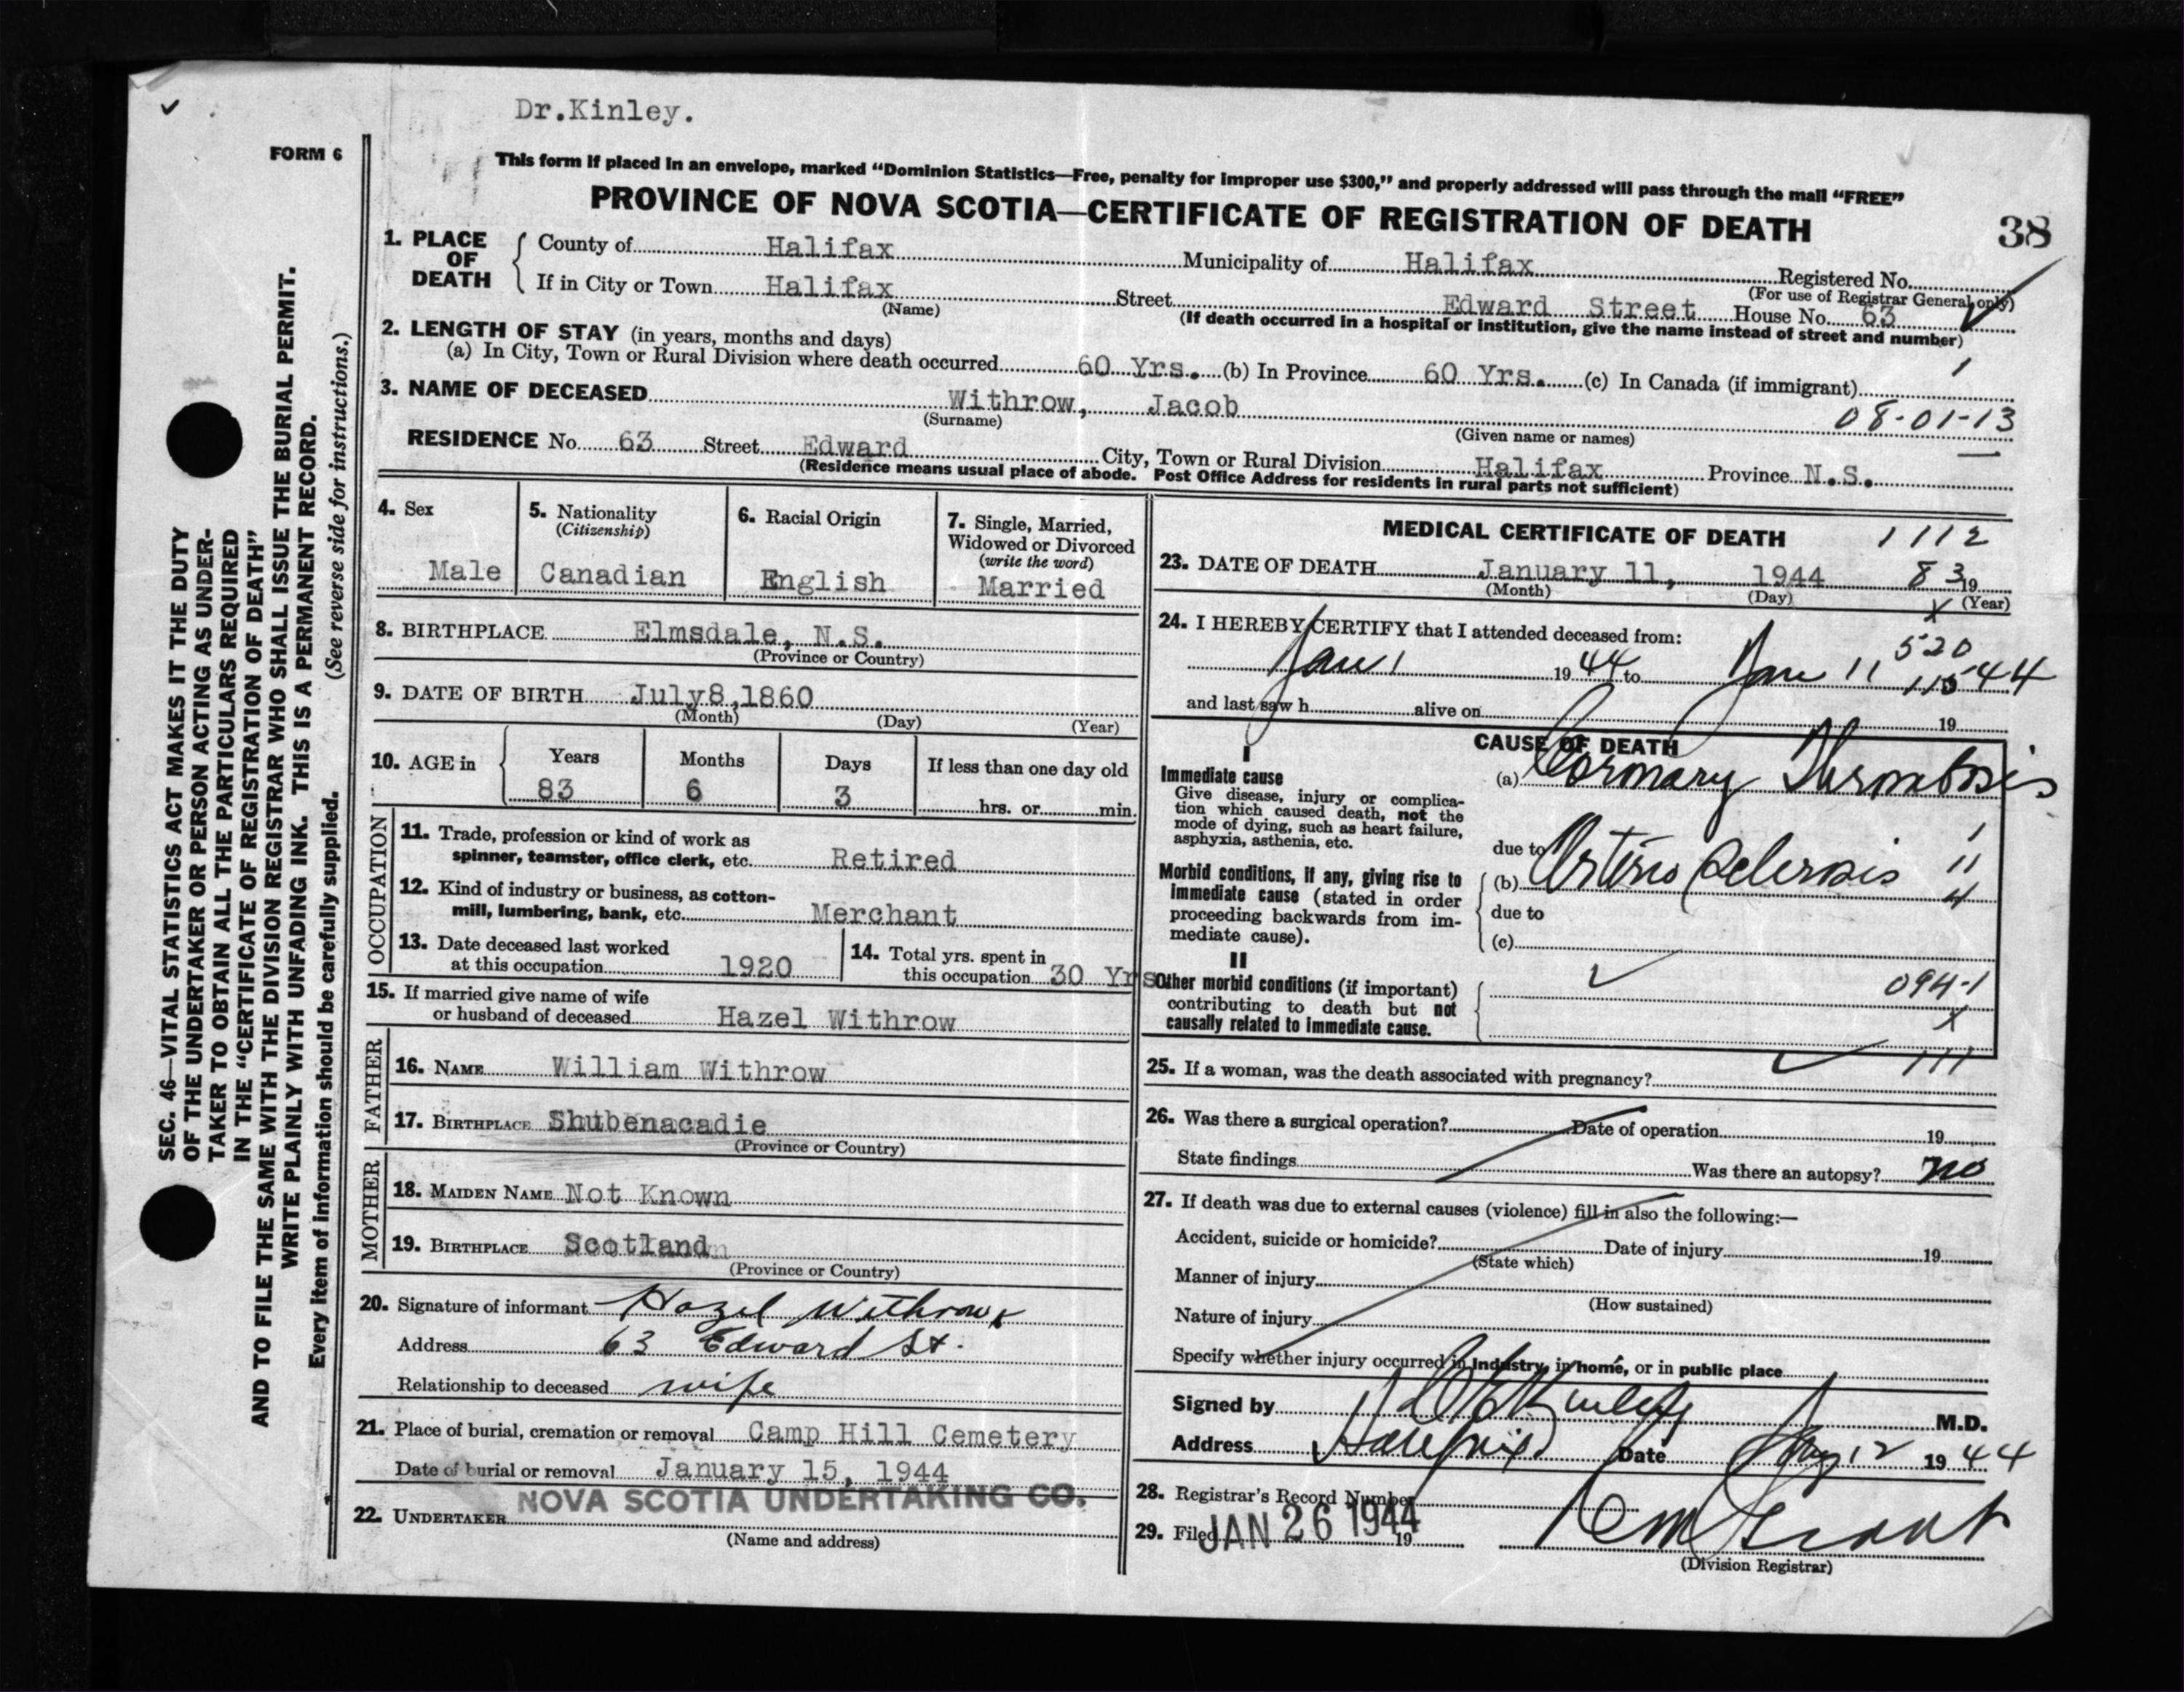 Dr.Kinley.
FORM 6
This form if placed in an envelope, marked “Dominion Statistics—Free, penalty for improper use $300,” and properly addressed will pass through the mail “FREE”
PROVINCE OF NOVA SCOTIA—CERTIFICATE OF REGISTRATION OF DEATH
38
1. PLACE OF DEATH
County of Halifax Municipality of Halifax Registered No.
(For use of Registrar General only)
If in City or Town Halifax Street Edward Street House No. 63
(Name) (If death occurred in a hospital or institution, give the name instead of street and number)
2. LENGTH OF STAY (in years, months and days)
(a) In City, Town or Rural Division where death occurred 60 Yrs. (b) In Province 60 Yrs. (c) In Canada (if immigrant) 1
3. NAME OF DECEASED Withrow, Jacob
(Surname) (Given name or names)
08-01-13
RESIDENCE No. 63 Street Edward City, Town or Rural Division Halifax Province N.S.
(Residence means usual place of abode. Post Office Address for residents in rural parts not sufficient)
4. Sex
Male
5. Nationality
(Citizenship)
Canadian
6. Racial Origin
English
7. Single, Married,
Widowed or Divorced
(write the word)
Married
8. BIRTHPLACE Elmsdale, N.S.
(Province or Country)
9. DATE OF BIRTH July8,1860
(Month) (Day) (Year)
10. AGE in
Years Months Days If less than one day old
83 6 3 hrs. or min.
OCCUPATION
11. Trade, profession or kind of work as
spinner, teamster, office clerk, etc. Retired
12. Kind of industry or business, as cotton-
mill, lumbering, bank, etc. Merchant
13. Date deceased last worked
at this occupation 1920
14. Total yrs. spent in
this occupation 30 Yrs
15. If married give name of wife
or husband of deceased Hazel Withrow
FATHER
16. NAME William Withrow
17. BIRTHPLACE Shubenacadie
(Province or Country)
MOTHER
18. MAIDEN NAME Not Known
19. BIRTHPLACE Scotland
(Province or Country)
20. Signature of informant Hazel Withrow
Address 63 Edward St.
Relationship to deceased wife
21. Place of burial, cremation or removal Camp Hill Cemetery
Date of burial or removal January 15, 1944
NOVA SCOTIA UNDERTAKING CO.
22. UNDERTAKER
(Name and address)
MEDICAL CERTIFICATE OF DEATH 1112
23. DATE OF DEATH January 11, 1944 83 19
(Month) (Day) (Year)
x
24. I HEREBY CERTIFY that I attended deceased from:
520
Jan 1 19 44 to Jan 11 1944
and last saw h alive on 19
CAUSE OF DEATH
I
Immediate cause
Give disease, injury or complica-
tion which caused death, not the
mode of dying, such as heart failure,
asphyxia, asthenia, etc.
(a) Coronary Thrombosis
1
due to
11
Morbid conditions, if any, giving rise to
immediate cause (stated in order
proceeding backwards from im-
mediate cause).
(b) Arterio Sclerosis
4
due to
(c)
II
Other morbid conditions (if important)
contributing to death but not
causally related to immediate cause.
094-1
x
111
25. If a woman, was the death associated with pregnancy?
26. Was there a surgical operation? Date of operation 19
State findings Was there an autopsy? no
27. If death was due to external causes (violence) fill in also the following:—
Accident, suicide or homicide? Date of injury 19
(State which)
Manner of injury
(How sustained)
Nature of injury
Specify whether injury occurred in industry, in home, or in public place
Signed by Kinley M.D.
Address Halifax Date Jany 12 19 44
28. Registrar's Record Number
29. Filed JAN 26 1944 19
(Division Registrar)
SEC. 46—VITAL STATISTICS ACT MAKES IT THE DUTY
OF THE UNDERTAKER OR PERSON ACTING AS UNDER-
TAKER TO OBTAIN ALL THE PARTICULARS REQUIRED
IN THE “CERTIFICATE OF REGISTRATION OF DEATH”
AND TO FILE THE SAME WITH THE DIVISION REGISTRAR WHO SHALL ISSUE THE BURIAL PERMIT.
WRITE PLAINLY WITH UNFADING INK. THIS IS A PERMANENT RECORD.
Every item of information should be carefully supplied. (See reverse side for instructions.)